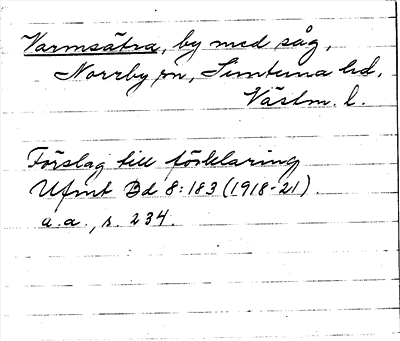 Varmsätra, by med såg,
Norrby sn, Simtuna hd,
Västm. l.
Förslag till förklaring
Ufmt Bd 8:183 (1918-21).
a.a., s. 234.